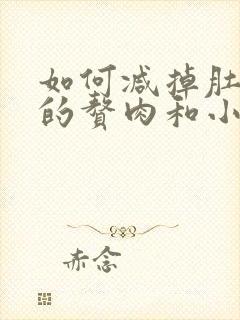 如何减掉肚
的赘肉和小
赤念